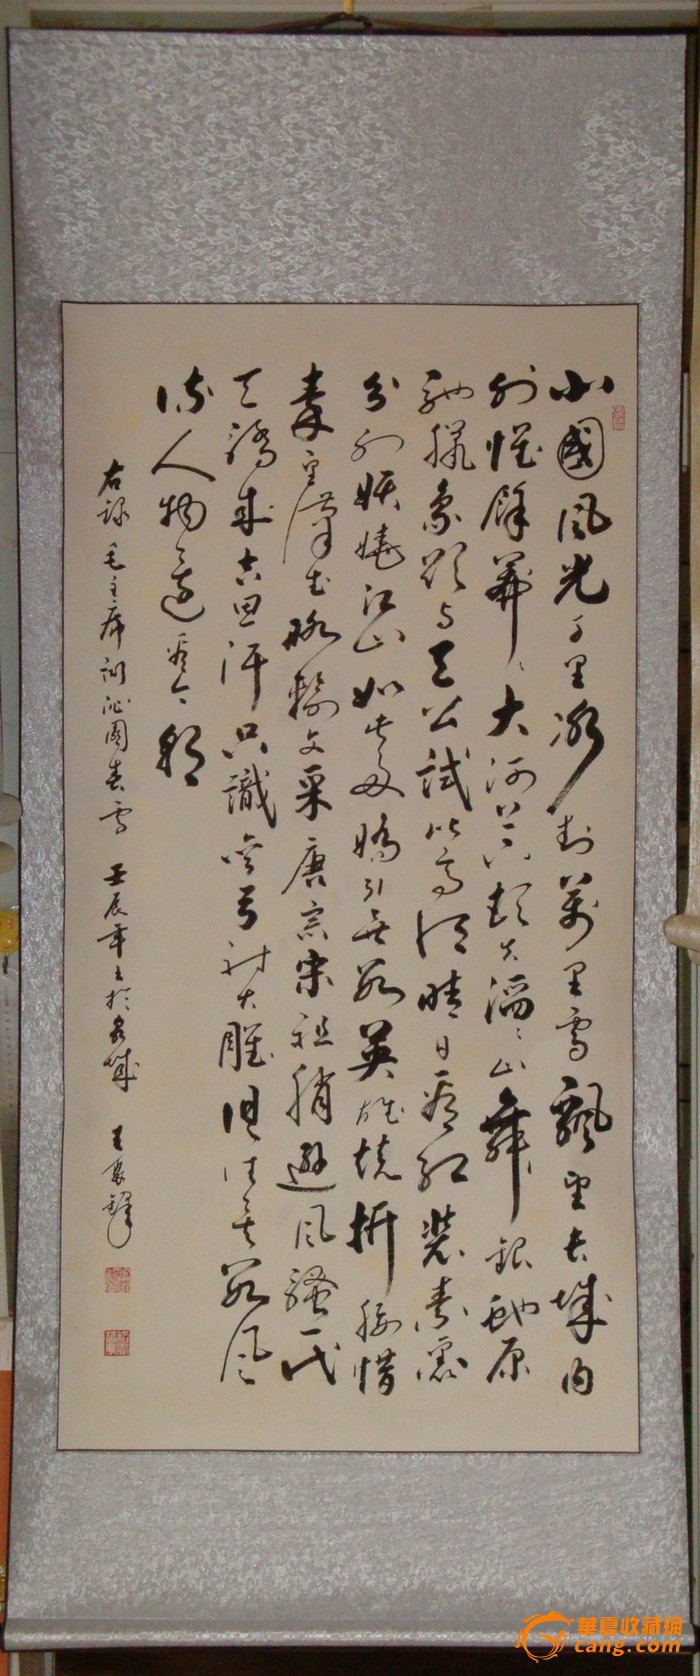 北國風光千里冰封萬里雪飄望長城內
外惟餘莽々大河上下頓失滔々山舞銀蛇原
馳臘象欲与天公試比高須晴日看紅裝素裹
分外妖嬈江山如此多嬌引無數英雄競折腰惜
秦皇漢武略輸文采唐宗宋祖稍遜風騷一代
天驕成吉思汗只識彎弓射大雕俱往矣數風
流人物還看今朝
右錄毛主席詞沁園春雪 壬辰年書於泉城 王
華夏收藏網
cang.com